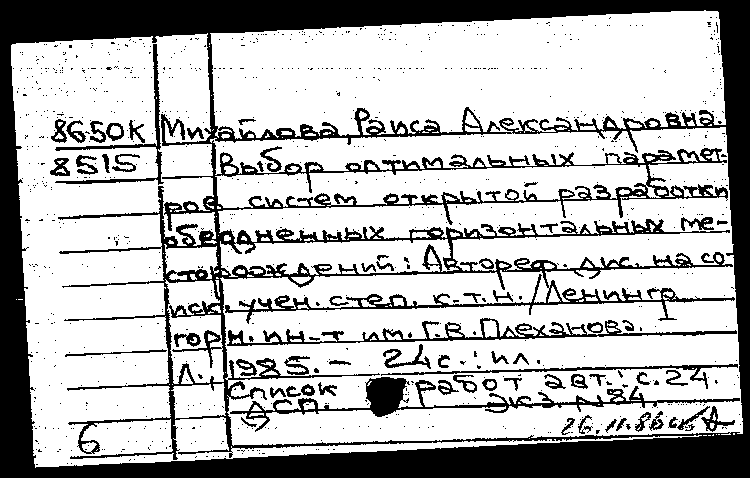 8650К Михайлова, Раиса Александровна.
8515 Выбор оптимальных парамет-
ров систем открытой разработки
обводненных горизонтальных ме-
сторождений: Автореф. дис. на со-
иск. учен. степ. к.т.н. / Ленингр
горн. ин-т им. Г.В. Плеханова.
Л., 1985. - 24с.: ил.
Список работ авт.: с.24.
ДСП. Экз. N84.
6 26.11.86